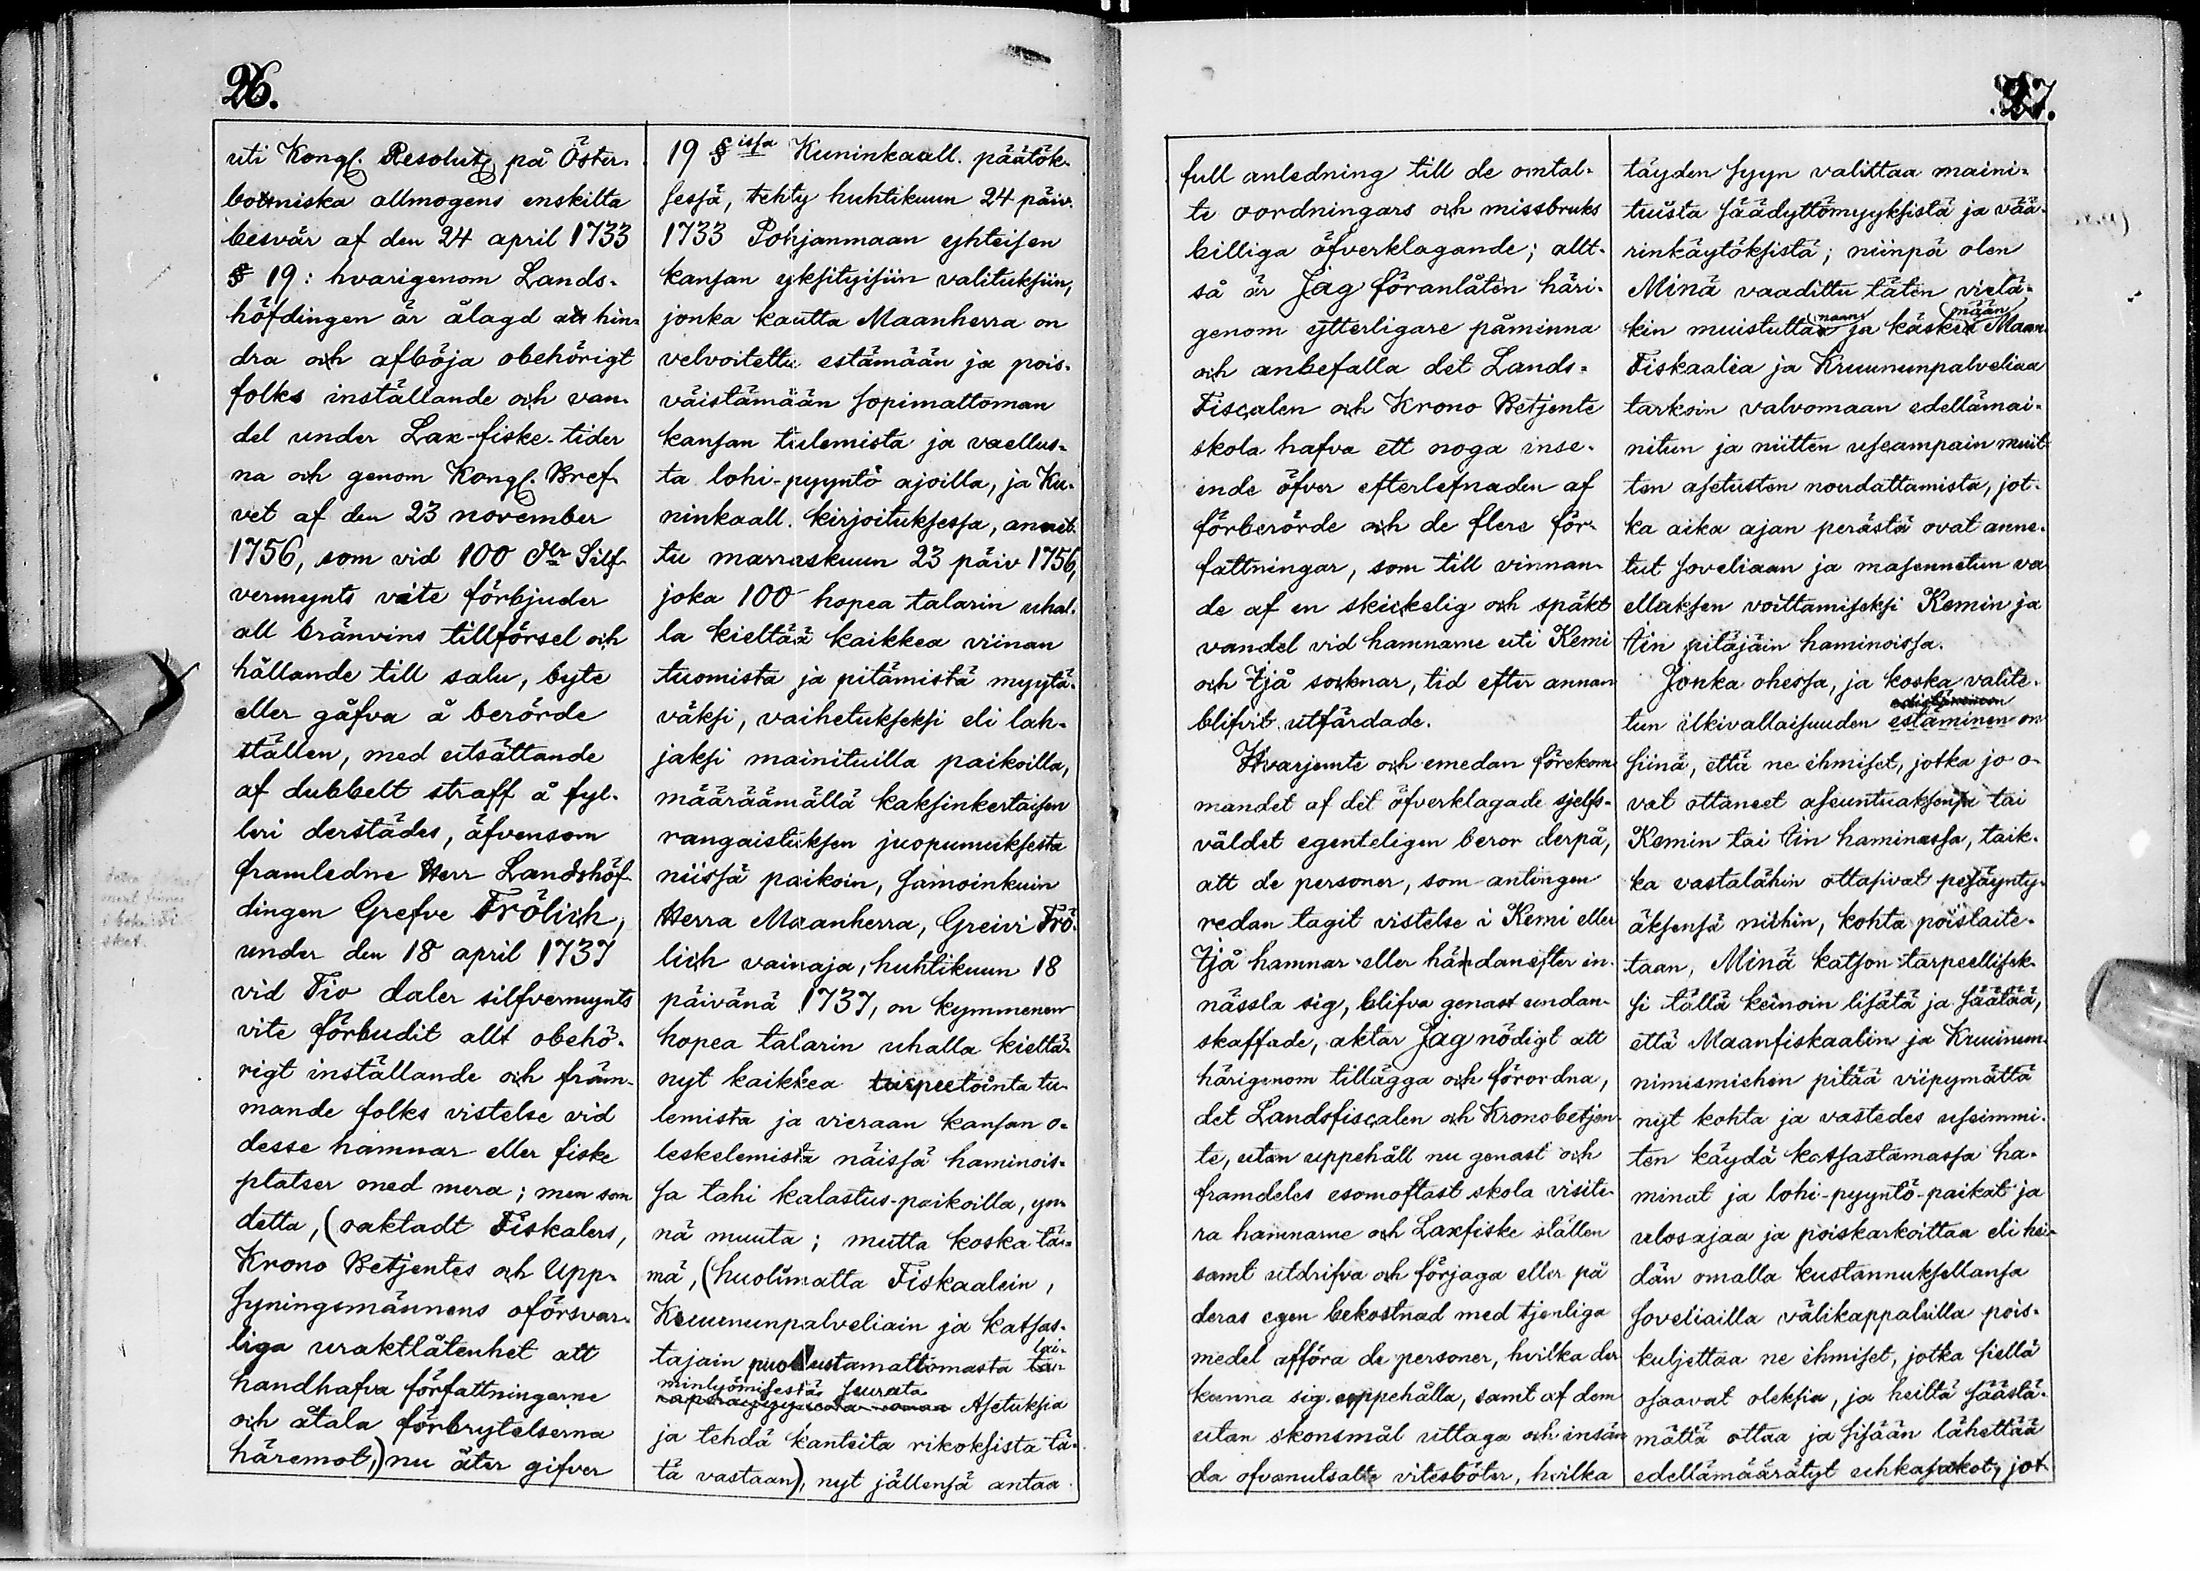 26.
uti Kongl. Resolut. på Öster-
botniska allmogens enskilta
besvär af den 24 april 1733
§ 19: hvarigenom Lands-
höfdingen är ålagd att hin-
dra och afböja obehörigt
folks inställande och van-
del under Lax-fiske-tider
na och genom Kongl. Bref-
vet af den 23 november
1756, som vid 100 dlr Silf-
vermynts vite förbjuder
all bränvins tillförsel och
hållande till salu, byte
eller gåfva å berörde
ställen, med utsättande
af dubbelt straff å fyl-
leri derstädes, äfvensom
framledne Herr Landshöf-
dingen Grefve Frölich,
under den 18 april 1737
vid Tio daler silfvermynts
vite förbudit allt obehö-
rigt inställande och främ-
mande folks vistelse vid
desse hamnar eller fiske
platser med mera; men som
detta, (oaktadt Fiskalers,
Krono Betjentes och Upp-
syningsmännens oförsvar-
liga uraktlåtenhet att
handhafva författningarne
och åtala förbrytelserna
häremot,) nu åter gifver
19 §issa Kuninkaall. päätök-
sessä, tehty huhtikuun 24 päiv.
1733 Pohjanmaan yhteisen
kansan yksityisiin valituksiin,
jonka kautta Maanherra on
velvoitettu estämään ja pois-
väistämään sopimattoman
kansan tulemista ja vaellus-
ta lohi-pyyntö ajoilla, ja Ku-
ninkaall. kirjoituksessa, annet-
tu marraskuun 23 päiv 1756,
joka 100 hopea talarin uhal-
la kieltää kaikkea viinan
tuomista ja pitämistä myytä-
väksi, vaihetukseksi eli lah-
jaksi mainituilla paikoilla,
määräämällä kaksinkertaisen
rangaistuksen juopumuksesta
niissä paikoin, samoinkuin
Herra Maanherra, Greivi Frö-
lich vainaja, huhtikuun 18
päivänä 1737, on kymmenen
hopea talarin uhalla kieltä-
nyt kaikkea tarpeetointa tu-
lemista ja vieraan kansan o-
leskelemista näissä haminois-
sa tahi kalastus-paikoilla, yn-
nä muuta; mutta koska tä-
mä, (huolimatta Fiskaalein,
Kruununpalveliain ja katsas-
tajain puolustamattomasta lai-
minlyömisestä seurata
Asetuksia
ja tehdä kanteita rikoksista tä-
tä vastaan), nyt jällensä antaa
27.
full anledning till de omtal-
te oordningars och missbruks
billiga öfverklagande; allt-
så är Jag föranlåten häri-
genom ytterligare påminna
och anbefalla det Lands-
Fiscalen och Krono Betjente
skola hafva ett noga inse-
ende öfver efterlefnaden af
förberörde och de flere för-
fattningar, som till vinnan-
de af en skickelig och späkt
vandel vid hamnarne uti Kemi
och Ijå socknar, tid efter annan
blifvit utfärdade.
Hvarjemte och emedan förekom-
mandet af det öfverklagade sjelfs-
väldet egenteligen beror derpå,
att de personer, som antingen
redan tagit vistelse i Kemi eller
Ijå hamnar eller hädanefter in-
nässla sig, blifva genast undan-
skaffade, aktar Jag nödigt att
härigenom tillägga och förordna,
det Landsfiscalen och Kronobetjen-
te, utan uppehåll nu genast och
framdeles esomoftast skola visite-
ra hamnarne och Laxfiske ställen
samt utdrifva och förjaga eller på
deras egen bekostnad med tjenliga
medel afföra de personer, hvilka der
kunna sig uppehålla, samt af dem
utan skonsmål uttaga och insän-
da ofvanutsatte vitesböter, hvilka
täyden syyn valittaa maini-
tuista säädyttömyyksistä ja vää-
rinkäytöksistä; niinpä olen
Minä vaadittu täten vielä-
kin muistuttamaan ja käskemään Maan-
Fiskaalia ja Kruununpalveliaa
tarkoin valvomaan edellämai-
nitun ja niitten useampain muit-
ten asetusten noudattamista, jot-
ka aika ajan perästä ovat anne-
tut soveliaan ja masennetun va-
elluksen voittamiseksi Kemin ja
Iin pitäjäin haminoissa.
Jonka ohessa, ja koska valite-
tun ilkivallaisuuden estäminen on
siinä, että ne ihmiset, jotka jo o-
vat ottaneet asuntuaksensa tai
Kemin tai Iin haminassa, taik-
ka vastalähin ottasivat pesäynty-
äksensä niihin, kohta poistaite-
taan, Minä katson tarpeellisek-
si tällä keinoin lisätä ja säätää,
että Maanfiskaalin ja Kruunun-
nimismiehen pitää viipymättä
nyt kohta ja vastedes useimmi-
ten käydä katsastamassa ha-
minat ja lohi-pyyntö-paikat ja
ulosajaa ja poiskarkoittaa eli hei-
dän omalla kustannuksellansa
soveliailla välikappaleilla pois-
kuljettaa ne ihmiset, jotka siellä
osaavat oleksia, ja heiltä säästä-
mättä ottaa ja sisään lähettää
edellämäärätyt uhkasakot, jot-